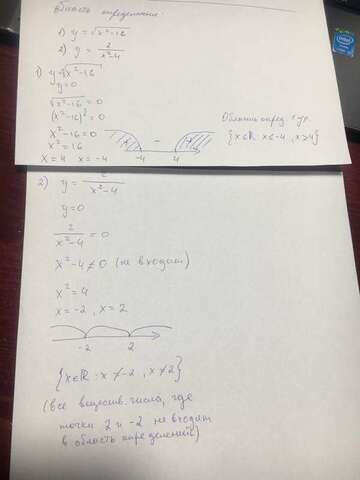 Область определения:
1) y = √x²-16
2) y = 2/(x²-4)
1) y = √x²-16
y=0
√x²-16 = 0
(x²-16)² = 0
x²-16=0
x²=16
x=4 x=-4
-4 4
Область опред
{x∈R x≤-4, x≥4}
2) y = 2/(x²-4)
y=0
2/(x²-4) = 0
x²-4≠0 (не входит)
x²=4
x=-2, x=2
-2 2
{x∈R : x≠-2, x≠2}
(все веществ. числа, где
точки 2 и -2 не входят
в область определений)
intel